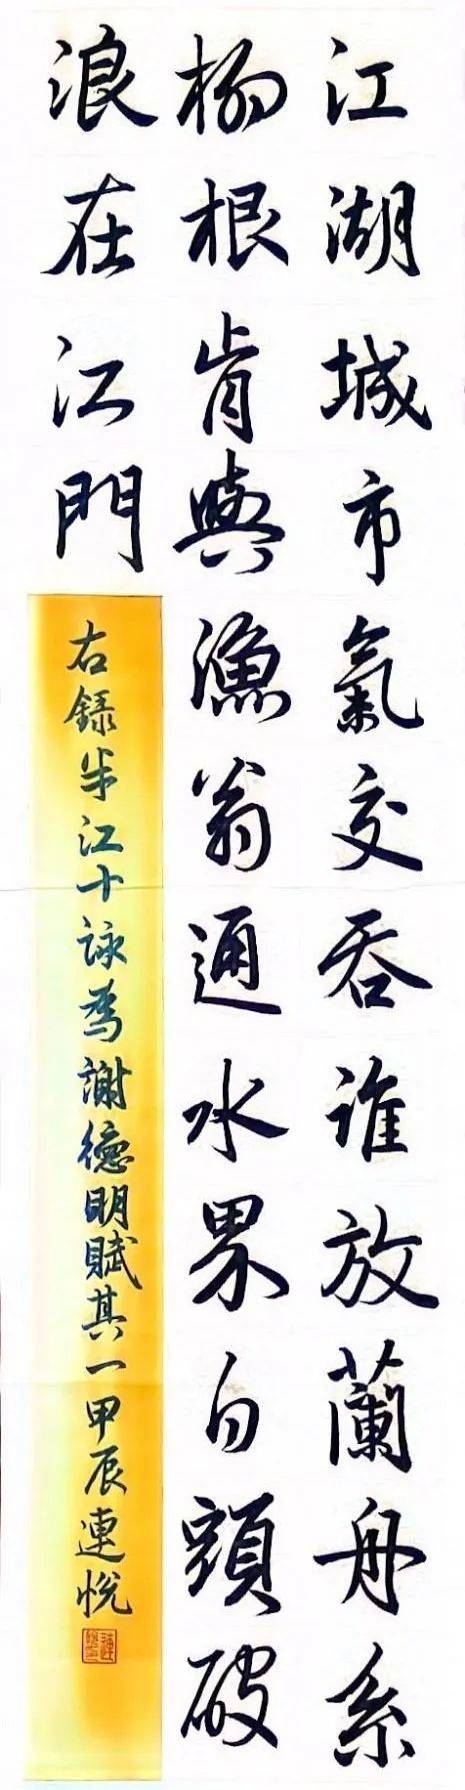 江湖城市氣交吞誰放蘭舟系
柳根肯與漁翁通水界白頭破
浪在江門
右錄半江十詠為謝德明賦其一甲辰連悅